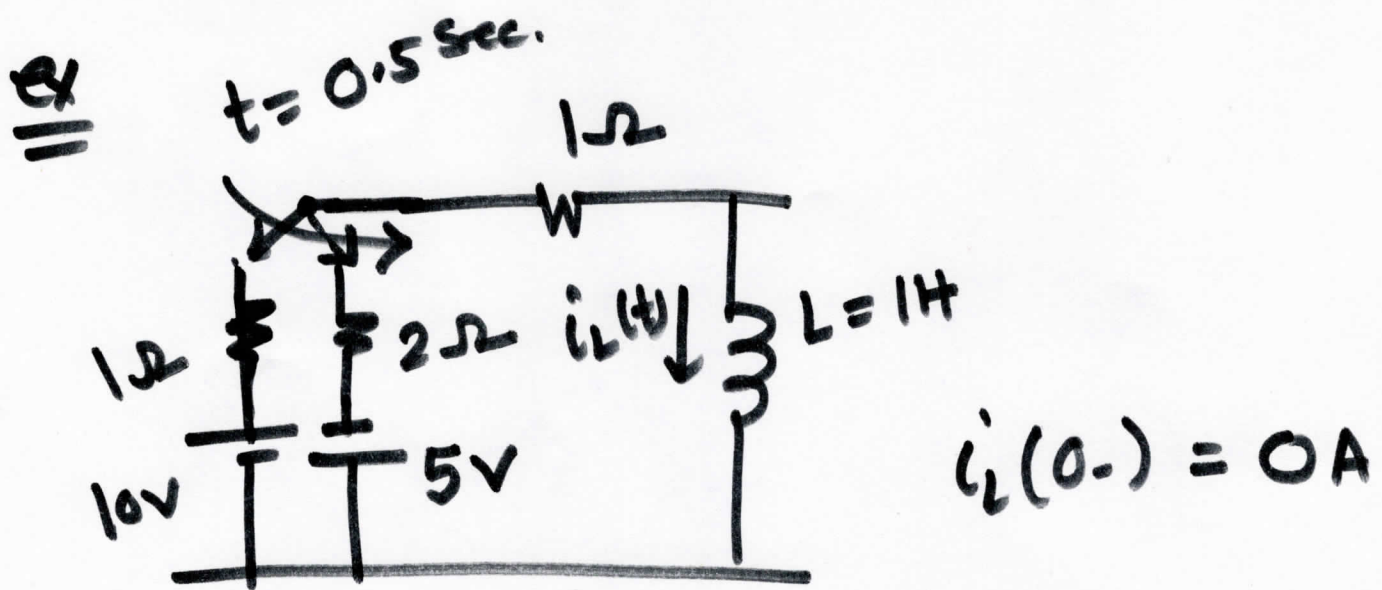 ex
t= 0.5 sec.
1Ω
1Ω
2Ω
i_L(t)
L=1H
10V
5V
i_L(0-) = 0A